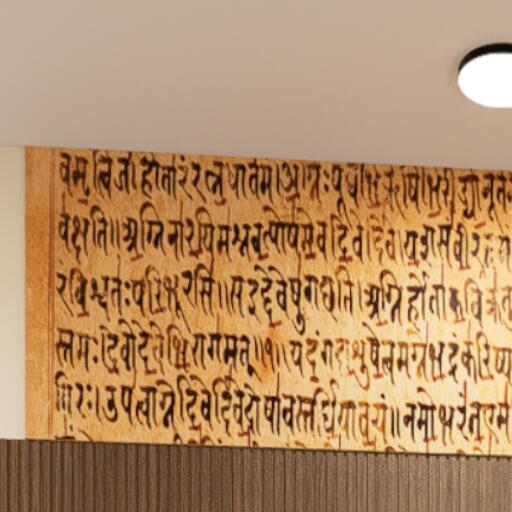 वमृत्विजं।होतारंरत्नधातमं।अग्निःपूर्वेभिर्ऋषिभिरीड्योनूत
वक्षति॥अग्निनारयिमश्नवत्पोषमेवदिवेदिवे।यशसंवीर
रंविश्वतःपरिभूरसि॥सइद्देवेषुगच्छति।अग्निर्होताकविक्रतु
स्तमः।देवोदेवेभिरागमत्॥१॥यदंगदाशुषेत्वमग्नेभद्रंकरिष्य
गिरः।उपत्वाग्नेदिवेदिवेदोषावस्तर्धियावयं॥नमोभरंतएम